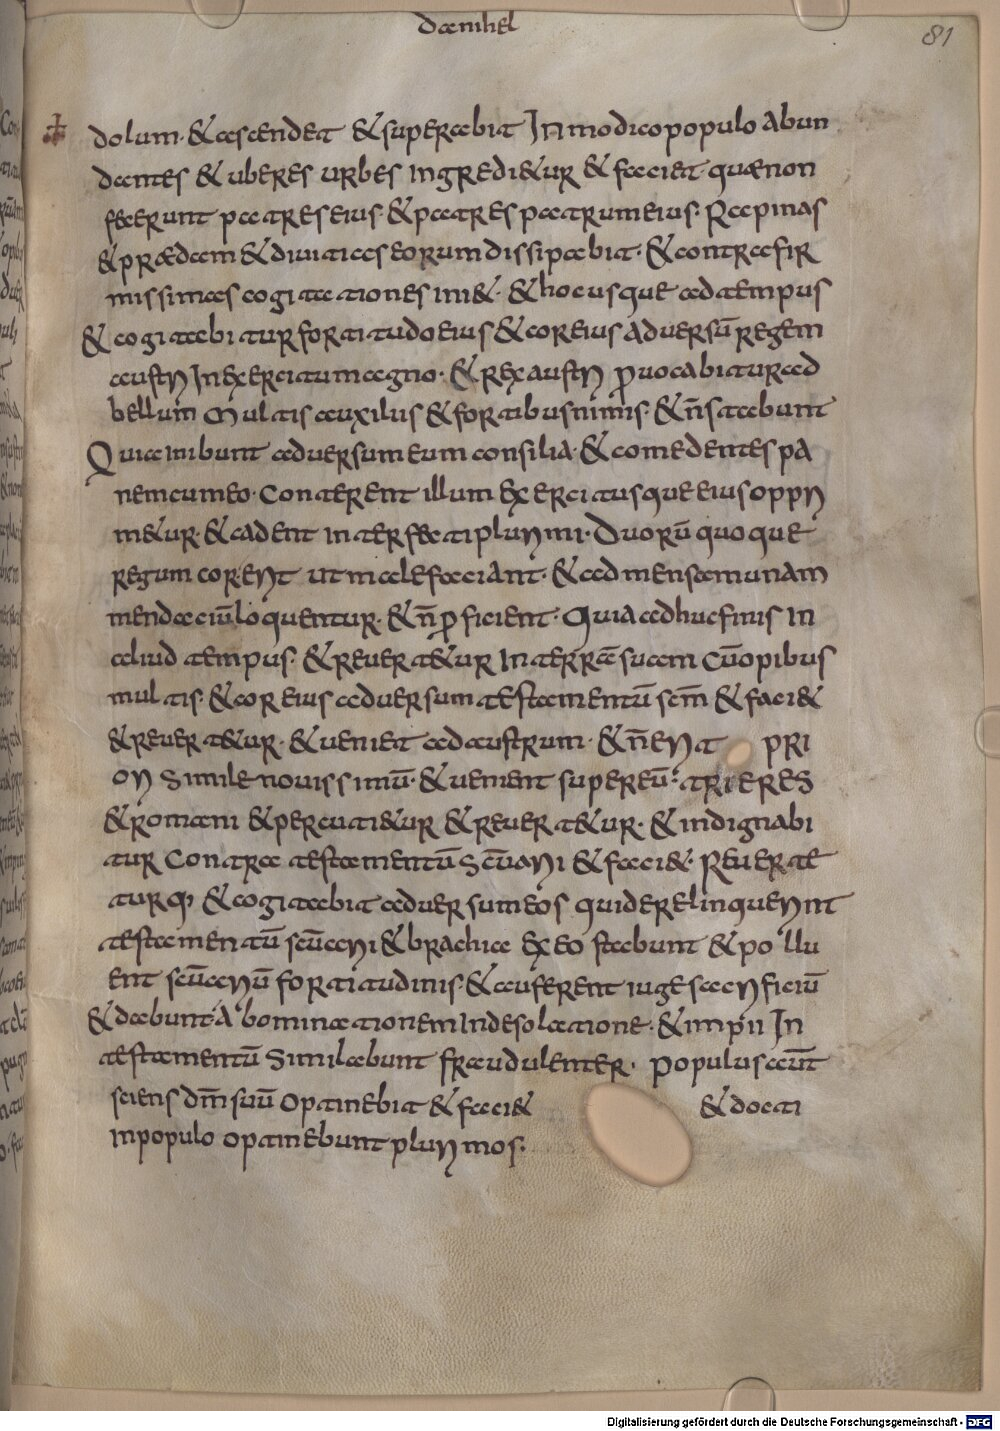 danihel
81
dolum· & ascendet & superabit In modico populo Abun
dantes & uberes urbes Ingredi&ur & faciet quæ non
fecerunt patres eius· & patres patrum eius· Rapinas
& prædam & diuitias eorum dissipabit· & contra fir
missimas cogitationes ini&· & hoc usque ad tempus
& cogitabitur fortitudo eius & cor eius aduersū regem
austri In exercitu magno· & rex austri p̱uocabitur ad
bellum Multis auxiliis & fortibus nimis· & n̄ stabunt
Quia inibunt aduersum eum consilia· & comedentes pa
nem cum eo· Conterent illum exercitusque eius oppri
m&ur· & cadent interfecti plurimi· Duorū quoque
regum cor erit ut malefaciant· & ad mensam unam
mendaciū loquentur· & n̄ p̱ficient· Quia adhuc finis In
aliud tempus· & reuert&ur In terrā suam Cū opibus
multis· & cor eius aduersum testamentū scm̄ & faci&
& reuert&ur· & ueniet ad austrum· & n̄ erit PRI
ori Simile nouissimū· & uenient super eū· TRIERES
& romani & percuti&ur & reuert&ur· & indignabi
tur Contra testamentū scūari & faci&· Reuerte
turq· & cogitabit aduersum eos qui derelinquerint
testamentū scūari & brachia ex eo stabunt & pollu
ent scūariū fortitudinis· & auferent iuge sacrificiū
& dabunt· Abominationem In desolatione· & impii In
testamentū Simulabunt fraudulenter· Populus aūt
sciens dm̄ suū Optinebit & faci& & docti
In populo optinebunt plurimos·
Digitalisierung gefördert durch die Deutsche Forschungsgemeinschaft - DFG